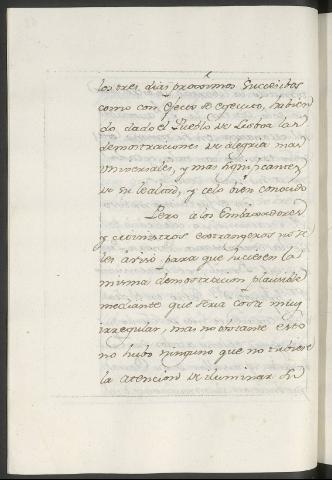 los tres dias proximos succesibos
como con efecto se egecuto, habien
do dado el Pueblo de Lisboa las
demostraciones de alegria mas
universales, y mas significantes
de su lealtad, y celo bien conocido
Pero a los Embaxadores
y Ministros extrangeros no se
les aviso, para que hiciesen la
misma demostracion plausible
mediante que seria cosa muy
irregular, mas no obstante esto
no hubo ninguno que no tubiese
la atencion de iluminar su